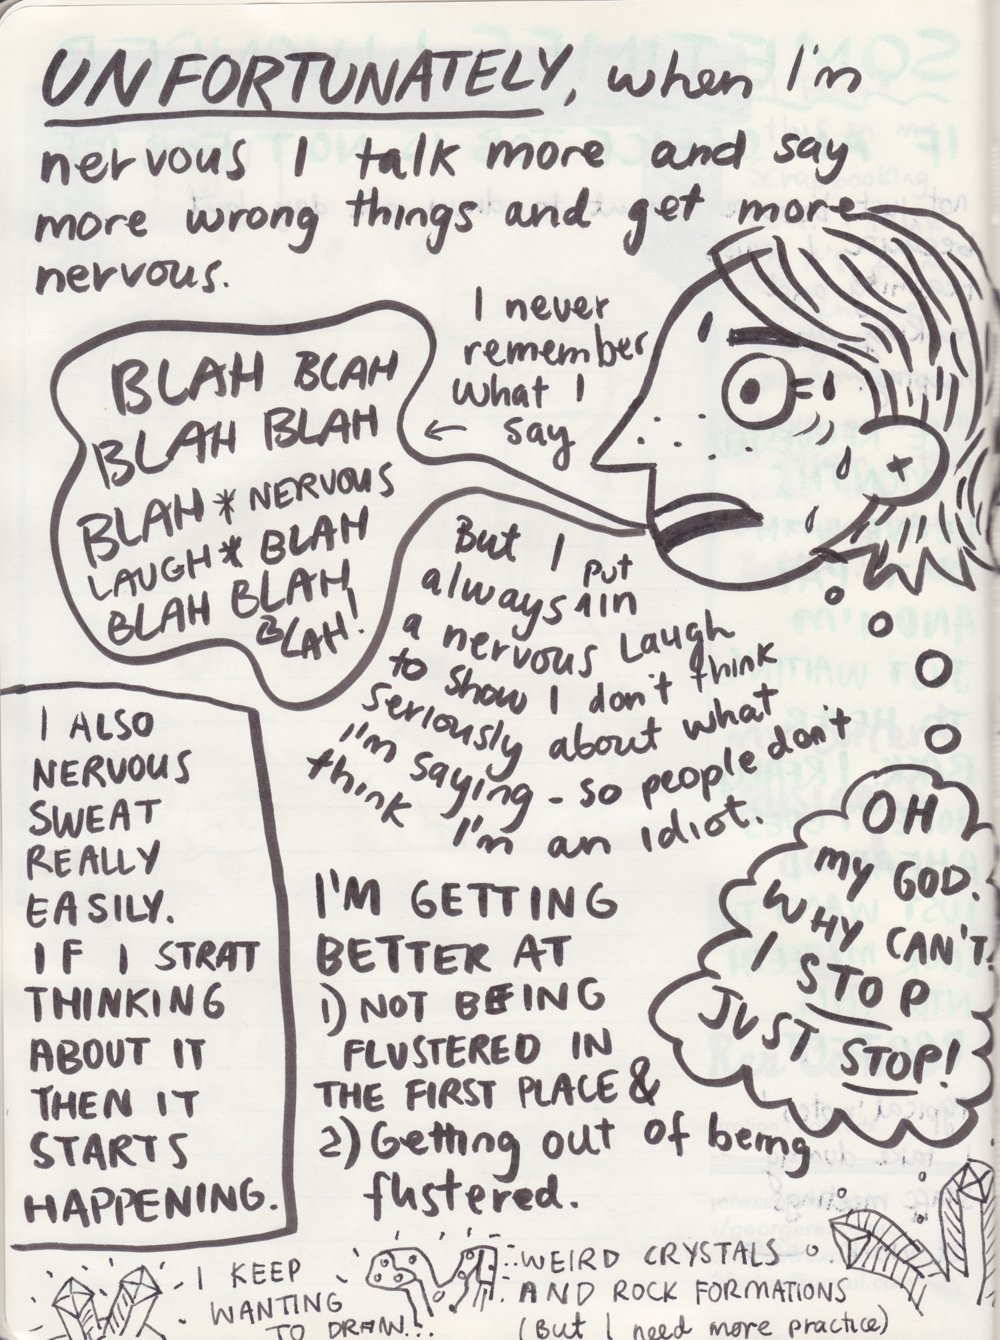 UNFORTUNATELY, when I'm
nervous I talk more and say
more wrong things and get more
nervous.
I never
remember
what I
say
BLAH BLAH
BLAH BLAH
BLAH *NERVOUS
LAUGH* BLAH
BLAH BLAH
BLAH!
But I
always put in
a nervous laugh
to show I don't think
seriously about what
I'm saying - so people don't
think I'm an idiot.
I ALSO
NERVOUS
SWEAT
REALLY
EASILY.
IF I STRAT
THINKING
ABOUT IT
THEN IT
STARTS
HAPPENING.
I'M GETTING
BETTER AT
1) NOT BEING
FLUSTERED IN
THE FIRST PLACE &
2) Getting out of being
flustered.
OH
MY GOD.
WHY CAN'T
I STOP
JUST STOP!
I KEEP
WANTING
TO DRAW...
WEIRD CRYSTALS
AND ROCK FORMATIONS
(But I need more practice)